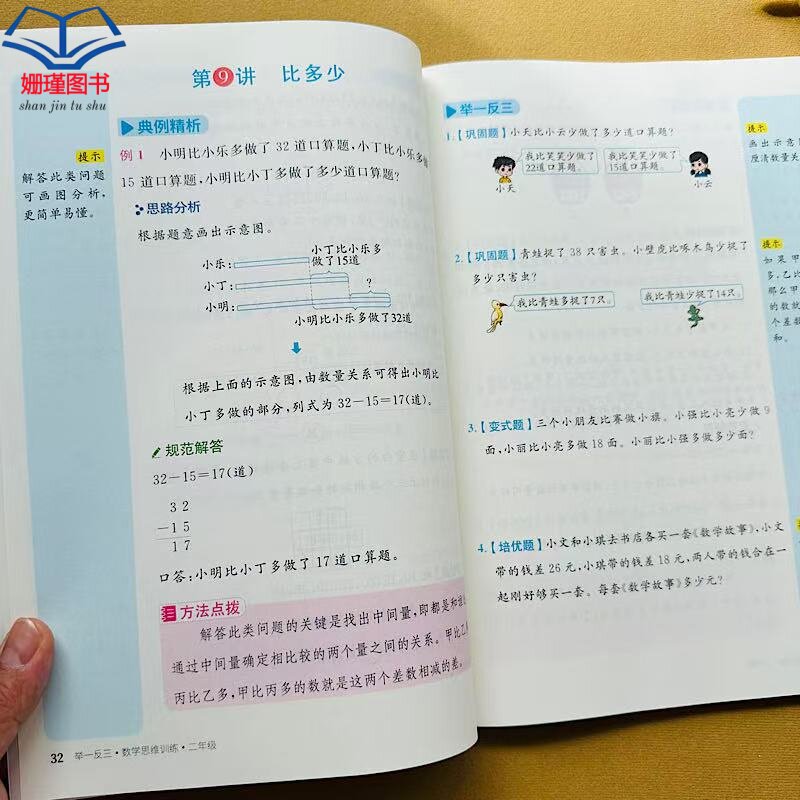 姗瑾图书
shan jin tu shu
第9讲 比多少
典例精析
提示
解答此类问题
可画图分析,
更简单易懂。
例1 小明比小乐多做了 32 道口算题,小丁比小乐多
15 道口算题,小明比小丁多做了多少道口算题?
思路分析
根据题意画出示意图。
小丁比小乐多
做了15道
小乐:
小丁:
?
小明:
小明比小乐多做了32道
根据上面的示意图,由数量关系可得出小明比
小丁多做的部分,列式为 32-15=17(道)。
规范解答
32-15=17(道)
3 2
-1 5
1 7
口答:小明比小丁多做了 17 道口算题。
方法点拨
解答此类问题的关键是找出中间量,即都是和谁
通过中间量确定相比较的两个量之间的关系。甲比乙
丙比乙多,甲比丙多的数就是这两个差数相减的差。
32 举一反三·数学思维训练·二年级
举一反三
1.【巩固题】小天比小云少做了多少道口算题?
我比笑笑少做了
22道口算题。
我比笑笑少做了
15道口算题。
小天
小云
2.【巩固题】青蛙捉了 38 只害虫。小壁虎比啄木鸟少捉了
多少只害虫?
我比青蛙多捉了7只。
我比青蛙少捉了14只。
3.【变式题】三个小朋友比赛做小旗。小强比小亮少做 9
面,小丽比小亮多做 18 面。小丽比小强多做多少面?
4.【培优题】小文和小琪去书店各买一套《数学故事》,小文
带的钱差 26 元,小琪带的钱差 18 元,两人带的钱合在一
起刚好够买一套。每套《数学故事》多少元?
提示
画出示意
厘清数量关
提示
如果甲
多,乙比
那么甲
的数就
个差数
和。